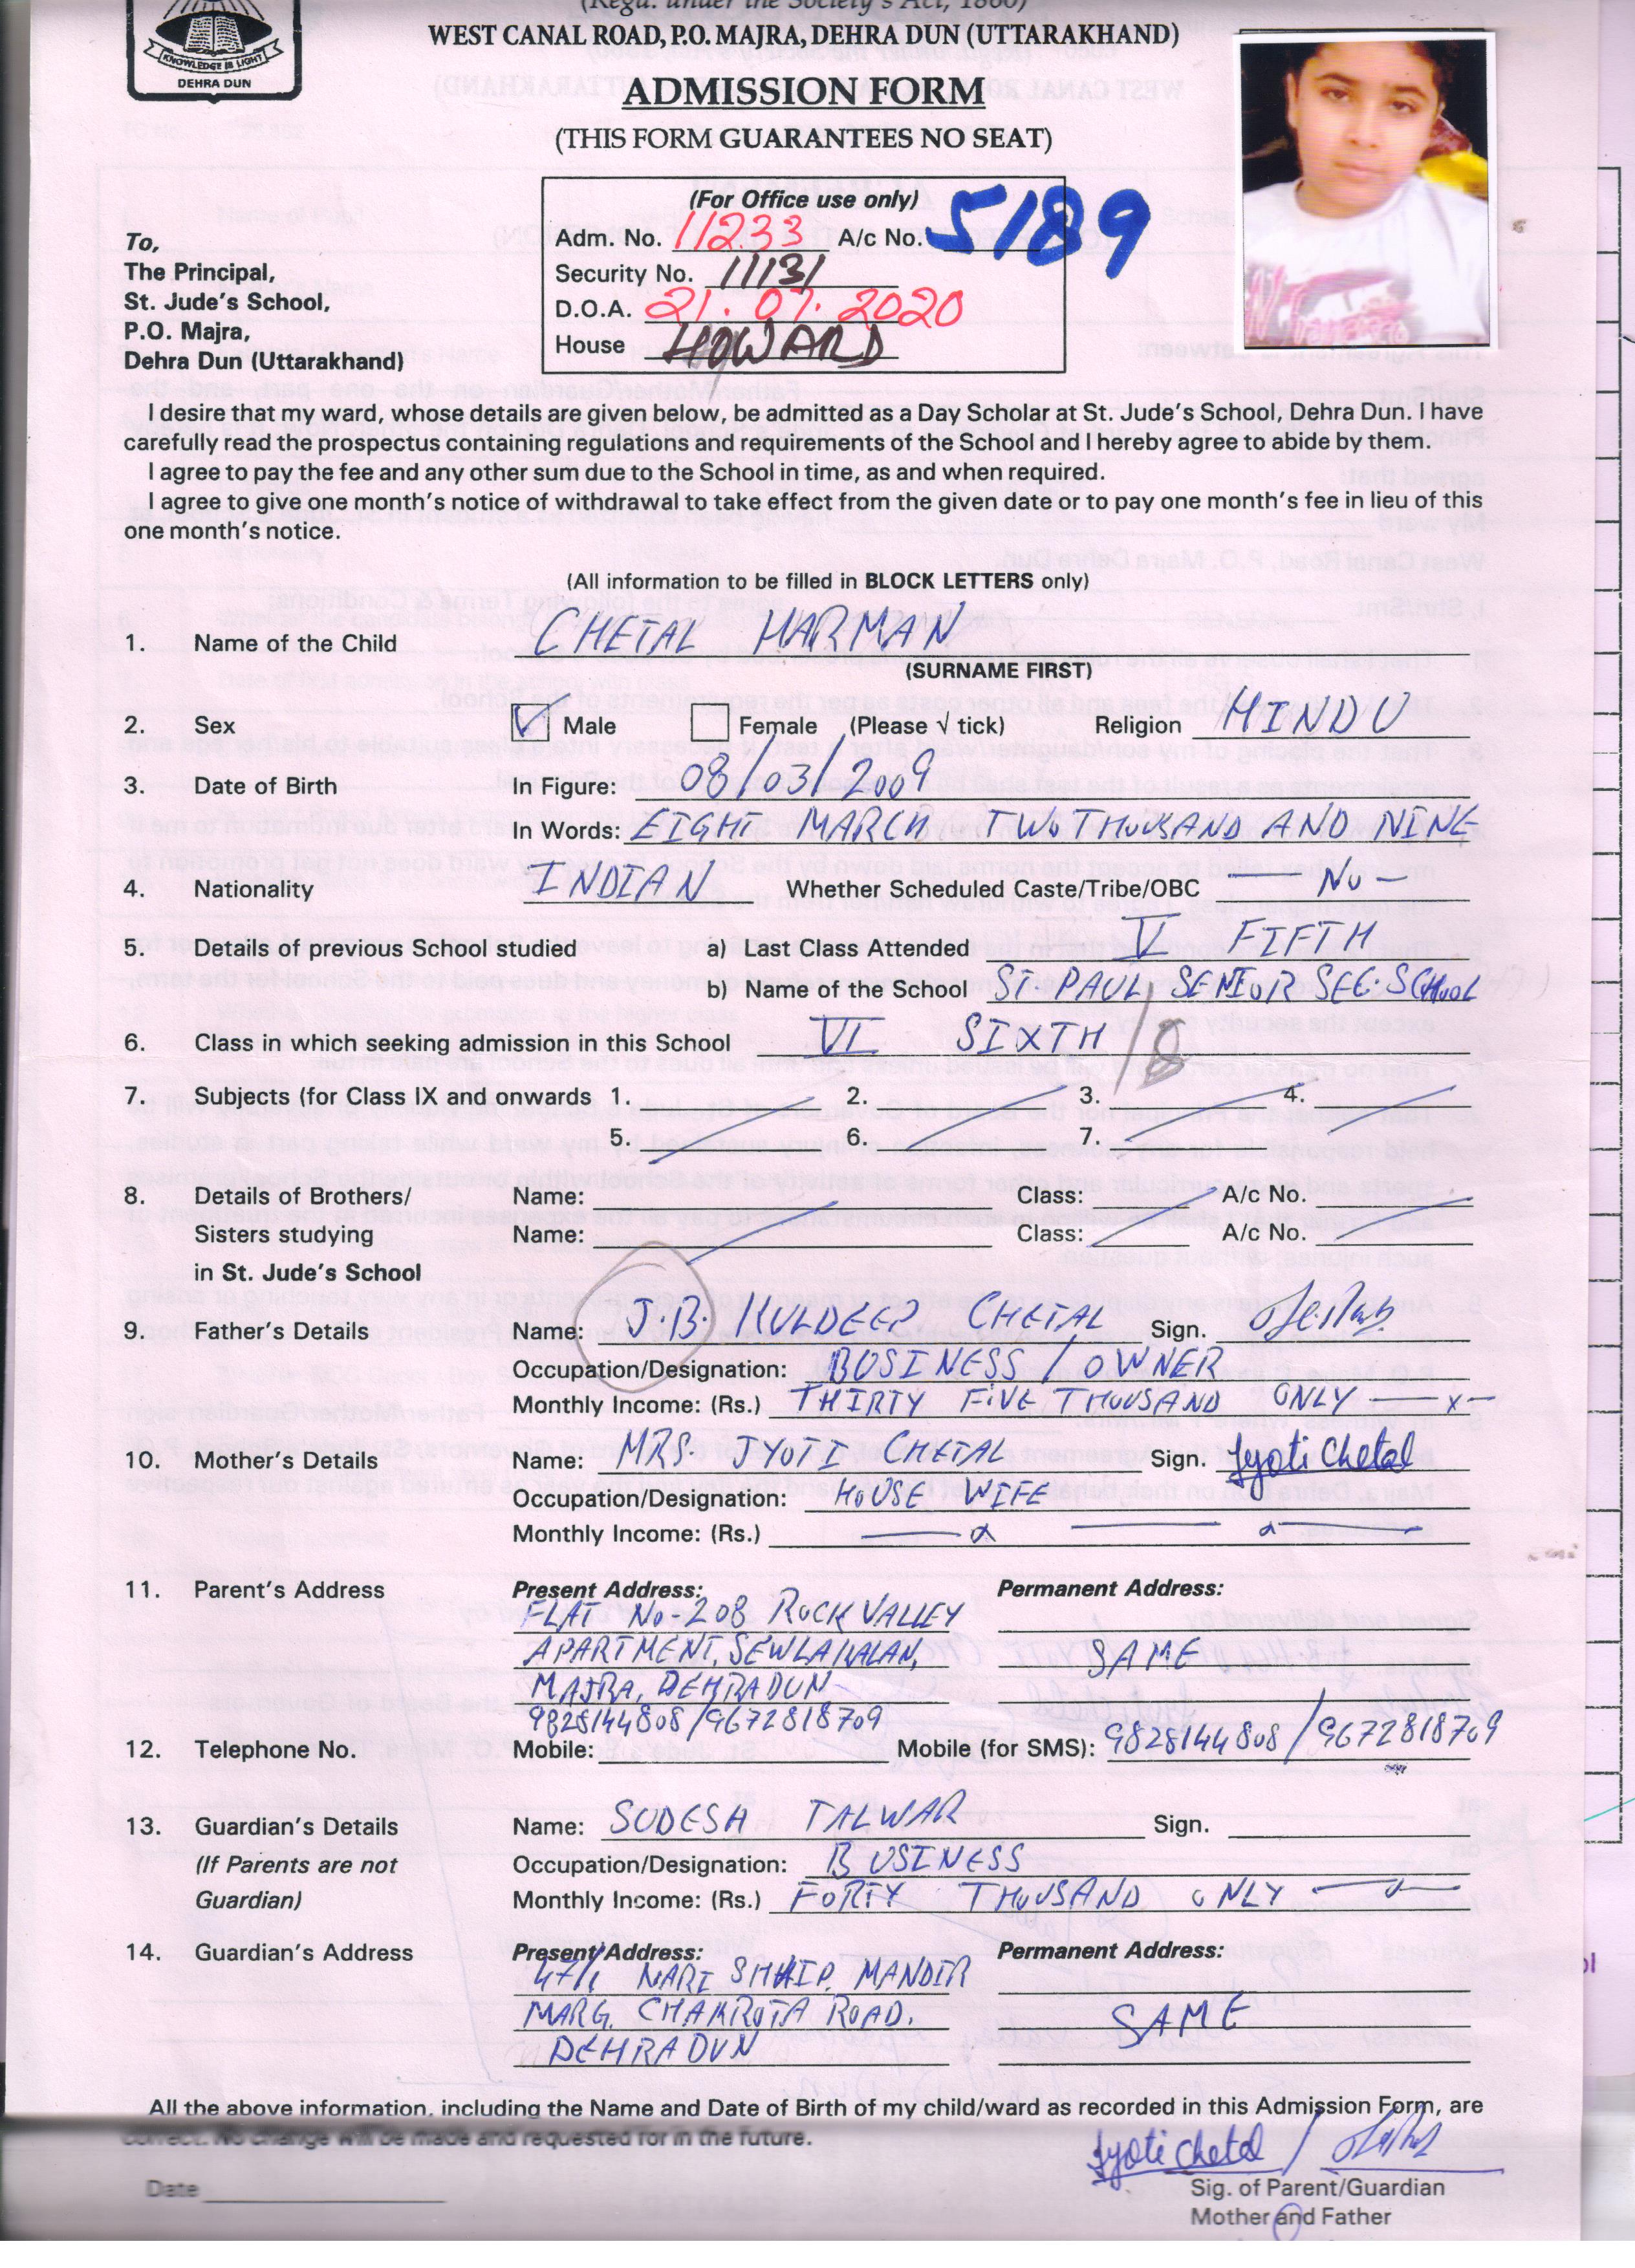 (Regd. under the Society's Act, 1860)
WEST CANAL ROAD, P.O. MAJRA, DEHRA DUN (UTTARAKHAND)
KNOWLEDGE IS LIGHT
DEHRA DUN
ADMISSION FORM
(THIS FORM GUARANTEES NO SEAT)
(For Office use only)
Adm. No. 11233 A/c No. 5189
Security No. 11131
D.O.A. 21.07.2020
House HOWARD
To,
The Principal,
St. Jude's School,
P.O. Majra,
Dehra Dun (Uttarakhand)
I desire that my ward, whose details are given below, be admitted as a Day Scholar at St. Jude's School, Dehra Dun. I have
carefully read the prospectus containing regulations and requirements of the School and I hereby agree to abide by them.
I agree to pay the fee and any other sum due to the School in time, as and when required.
I agree to give one month's notice of withdrawal to take effect from the given date or to pay one month's fee in lieu of this
one month's notice.
(All information to be filled in BLOCK LETTERS only)
1. Name of the Child CHETAL HARMAN
(SURNAME FIRST)
2. Sex Male Female (Please √ tick) Religion HINDU
3. Date of Birth In Figure: 08/03/2009
In Words: EIGHT MARCH TWO THOUSAND AND NINE
4. Nationality INDIAN Whether Scheduled Caste/Tribe/OBC - No -
5. Details of previous School studied a) Last Class Attended V FIFTH
b) Name of the School ST. PAUL SENIOR SEC. SCHOOL
6. Class in which seeking admission in this School VI SIXTH / 8
7. Subjects (for Class IX and onwards 1. 2. 3. 4.
5. 6. 7.
8. Details of Brothers/ Name: Class: A/c No.
Sisters studying Name: Class: A/c No.
in St. Jude's School
9. Father's Details Name: J.B. KULDEEP CHETAL Sign.
Occupation/Designation: BUSINESS / OWNER
Monthly Income: (Rs.) THIRTY FIVE THOUSAND ONLY — x —
10. Mother's Details Name: MRS JYOTI CHETAL Sign. Jyoti Chetal
Occupation/Designation: HOUSE WIFE
Monthly Income: (Rs.)
11. Parent's Address Present Address: Permanent Address:
FLAT No. 208 ROCK VALLEY
APARTMENT, SEWLA KALAN, SAME
MAJRA, DEHRADUN
9828144808/9672818709
12. Telephone No. Mobile: Mobile (for SMS): 9828144808/9672818709
13. Guardian's Details Name: SUDESH TALWAR Sign.
(If Parents are not Occupation/Designation: BUSINESS
Guardian) Monthly Income: (Rs.) FORTY THOUSAND ONLY
14. Guardian's Address Present Address: Permanent Address:
47/1 NARI SHILP MANDIR
MARG. CHAKROTA ROAD. SAME
DEHRADUN
All the above information, including the Name and Date of Birth of my child/ward as recorded in this Admission Form, are
correct. No change will be made and requested for in the future.
Jyoti Chetal /
Date
Sig. of Parent/Guardian
Mother and Father